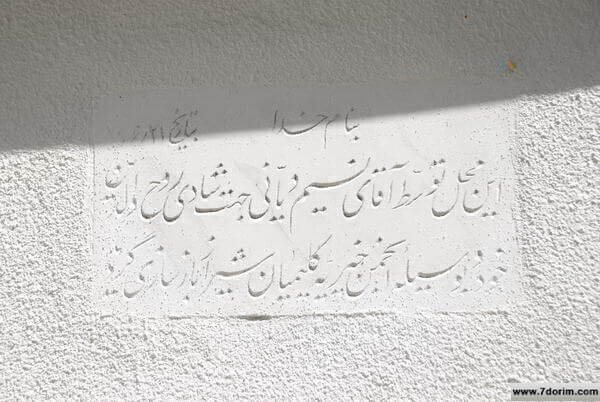 بنام خدا بتاریخ
این محل توسط آقای نسیم دیانی جهت شادی روح والدین
خود بوسیله انجمن خیریه کلیمیان شیراز بازسازی گردید
www.7dorim.com